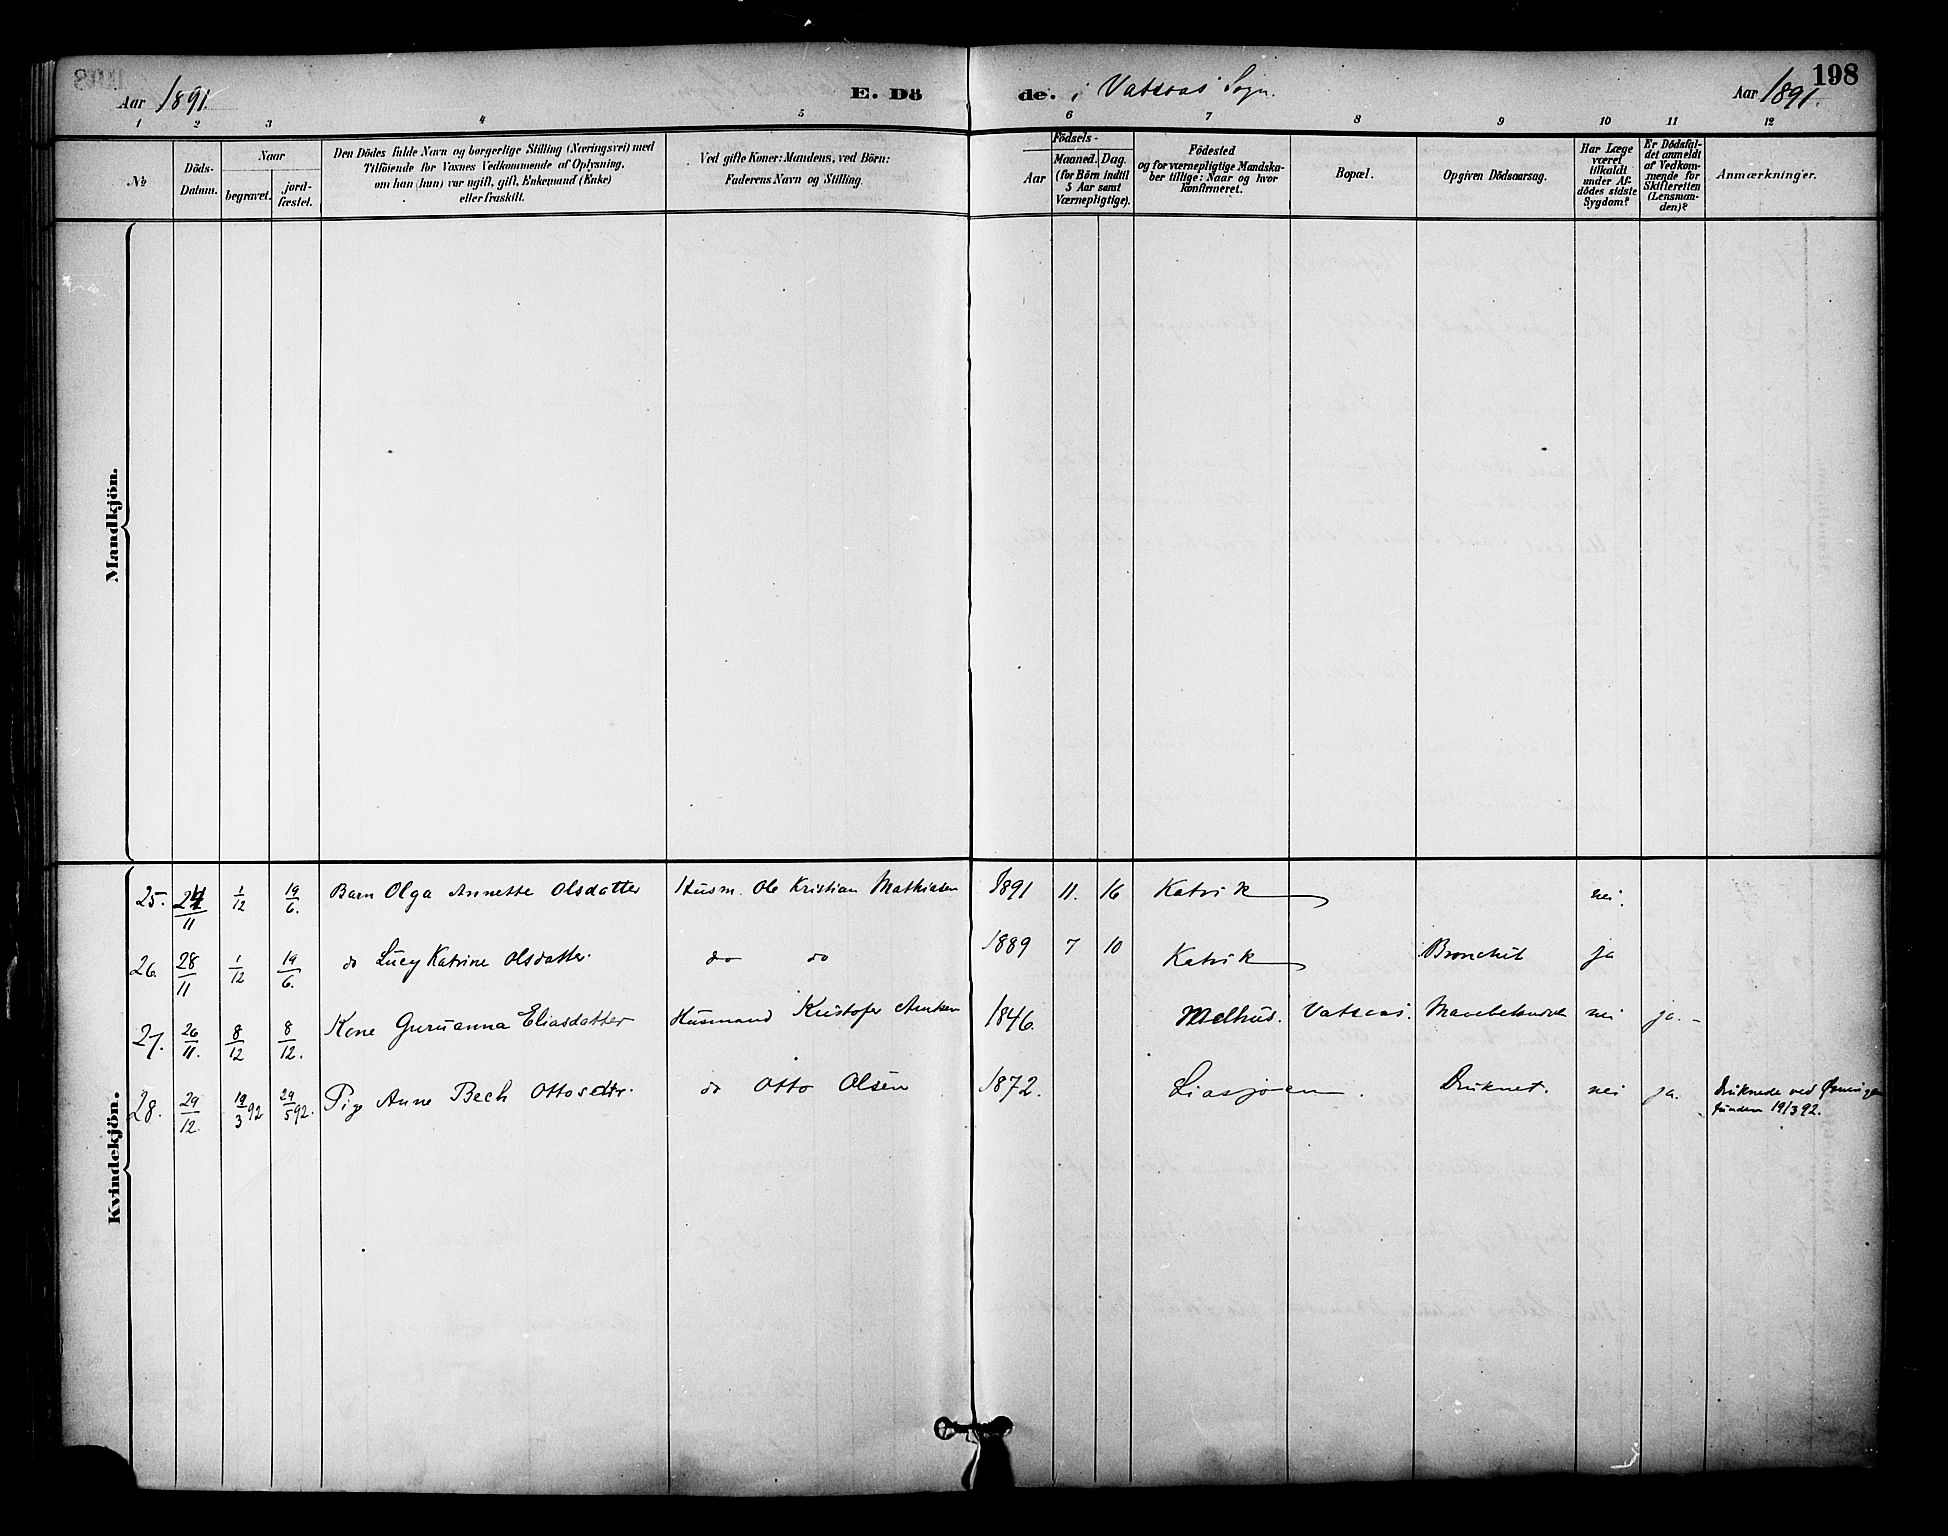 Aar 1891. E. Dö de. i Vatsaas Sogn. Aar 1891. 198
1 2 3 4 5 6 7 8 9 10 11 12
No
Döds-Datum.
Naar
begravet.
jord-fæstet.
Den Dödes fulde Navn og borgerlige Stilling (Næringsvei) med
Tilföiende for Voxnes Vedkommende af Oplysning,
om han (hun) var ugift, gift, Enkemand (Enke)
eller fraskilt.
Ved gifte Koner: Mandens, ved Börn:
Faderens Navn og Stilling.
Födsels-
Aar
Maaned. Dag.
(for Börn indtil
5 Aar samt
Værnepligtige).
Födested
og for værnepligtige Mandska-
ber tillige: Naar og hvor
konfirmeret.
Bopæl.
Opgiven Dödsaarsag.
Har Læge
været
tilkaldt
under Af-
dödes sidste
Sygdom?
Er Dödsfal-
det anmeldt
af Vedkom-
mende for
Skifteretten
(Lensman-
den)?
Anmærkninger.
Mandkjön.
Kvindekjön.
25. 24/11 1/12 19/6. Barn Olga Annette Olsdatter Husm. Ole Kristian Mathiasen 1891 11. 16 Katvik nei.
26. 28/11 1/12 19/6. do Lucy Katrine Olsdatter. do do 1889 7 10 Katvik Bronchit ja
27. 26/11. 8/12 8/12. Kone Guruanna Eliasdatter Husmand Kristofer 1846. Melhus. Vatsaas. nei ja.-
28. 29/12. 19/3 92 29/5 92. Pige Anne Bech Ottosdtr. do Otto Olsen 1872. Liasjøen. Druknet. nei ja. Druknede ved
funden 19/3 92.